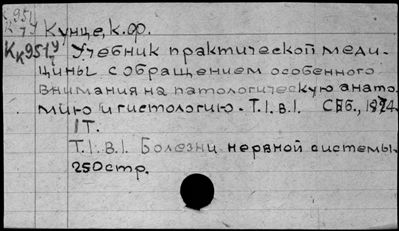 К 954
К 7У Кунце, К. Ф.
Кк951У Учебник практической меди-
цины с обращением особенного
внимания на патологическую анато
мию и гистологию. Т. I. в. I. СПб., 1874.
1Т.
Т. I. в. I. Болезни нервной системы.
250стр.